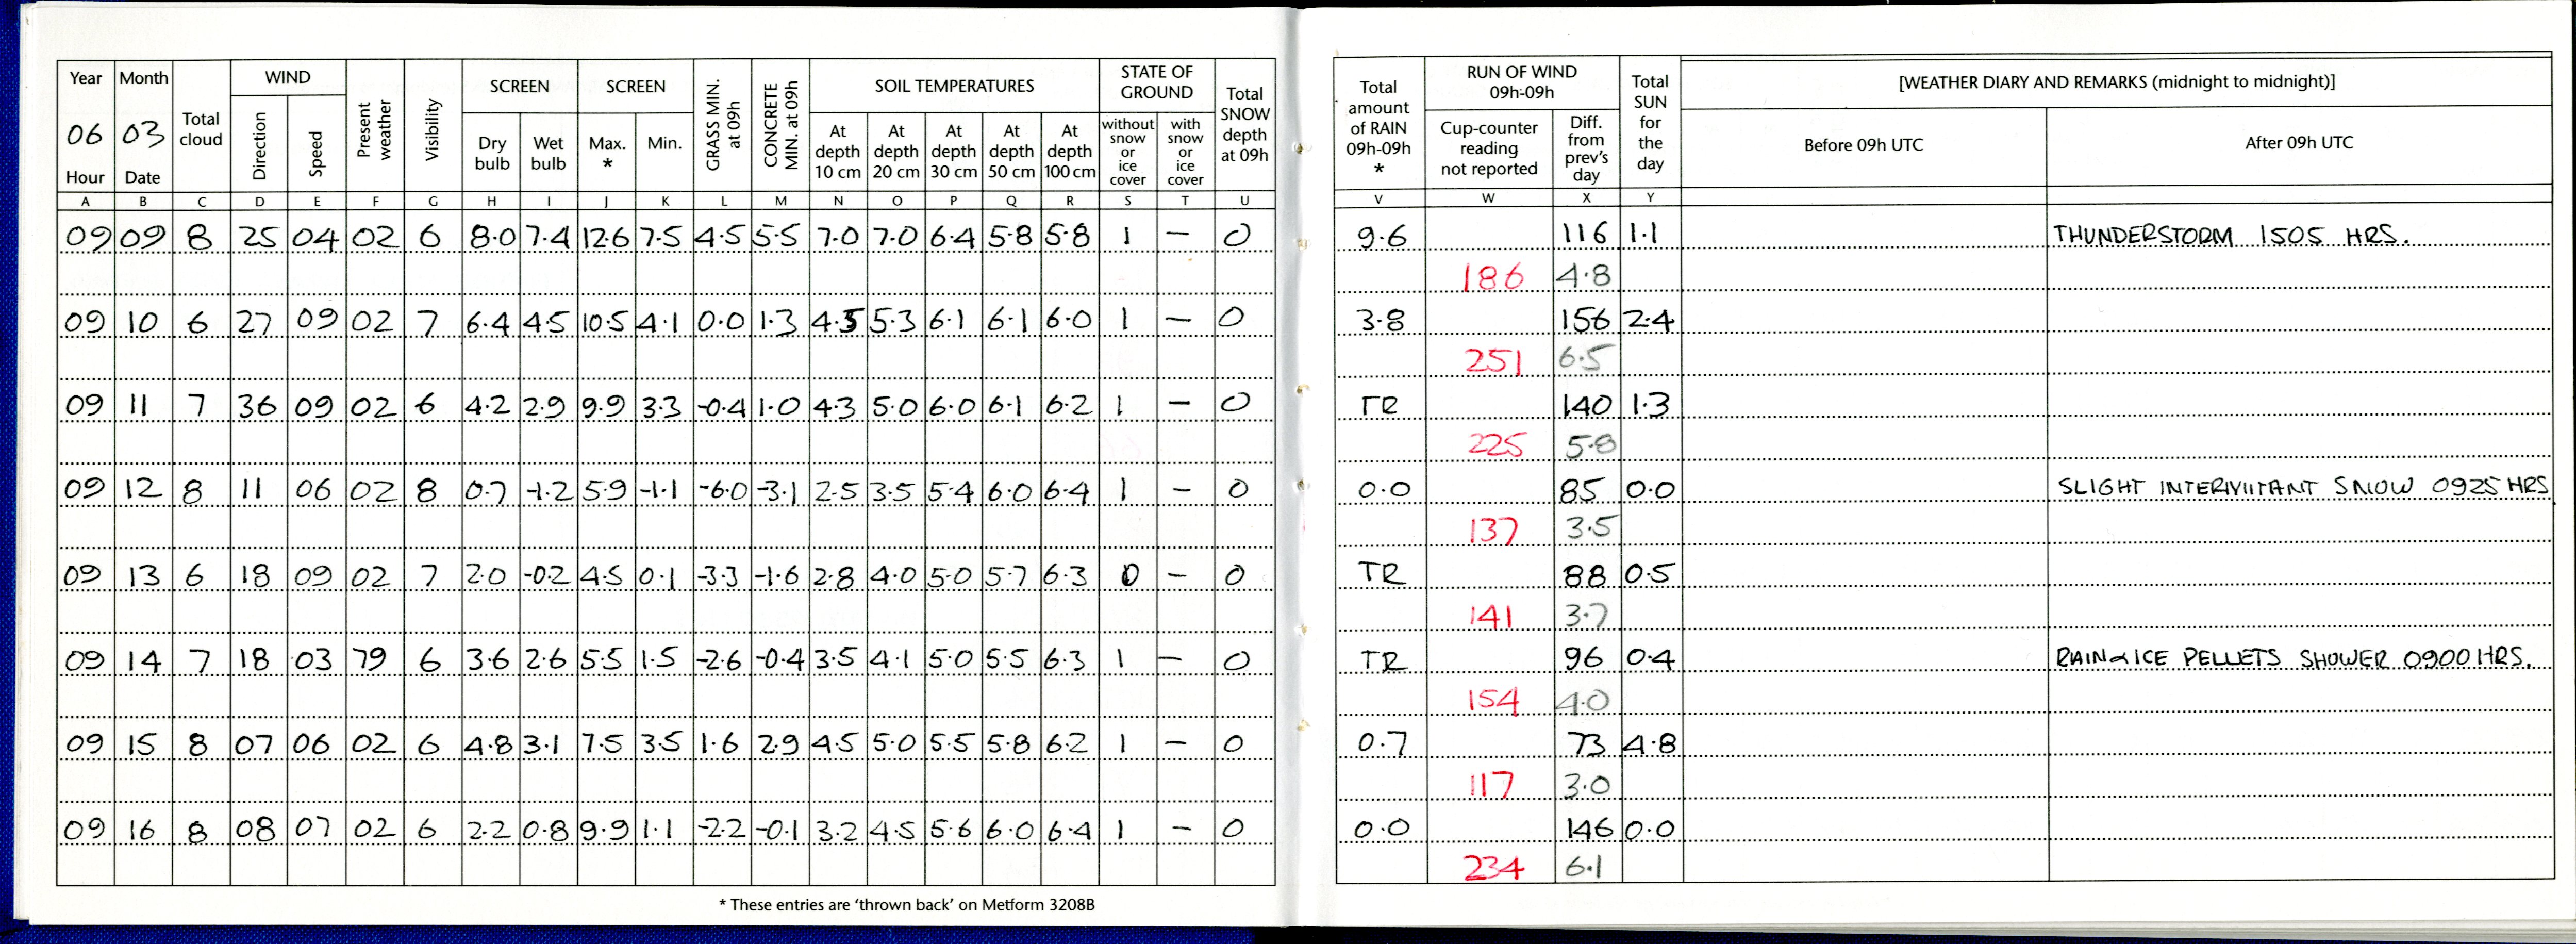 Year Month WIND SCREEN SCREEN SOIL TEMPERATURES STATE OF GROUND
06 03 Total cloud Direction Speed Present weather Visibility Dry bulb Wet bulb Max. * Min. GRASS MIN. at 09h CONCRETE MIN. at 09h At depth 10 cm At depth 20 cm At depth 30 cm At depth 50 cm At depth 100 cm without snow or ice cover with snow or ice cover Total SNOW depth at 09h
Hour Date
A B C D E F G H I J K L M N O P Q R S T U
09 09 8 25 04 02 6 8.0 7.4 12.6 7.5 4.5 5.5 7.0 7.0 6.4 5.8 5.8 1 — 0
09 10 6 27 09 02 7 6.4 4.5 10.5 4.1 0.0 1.3 4.5 5.3 6.1 6.1 6.0 1 — 0
09 11 7 36 09 02 6 4.2 2.9 9.9 3.3 -0.4 1.0 4.3 5.0 6.0 6.1 6.2 1 — 0
09 12 8 11 06 02 8 0.7 -1.2 5.9 -1.1 -6.0 -3.1 2.5 3.5 5.4 6.0 6.4 1 — 0
09 13 6 18 09 02 7 2.0 -0.2 4.5 0.1 -3.3 -1.6 2.8 4.0 5.0 5.7 6.3 0 — 0
09 14 7 18 03 79 6 3.6 2.6 5.5 1.5 -2.6 -0.4 3.5 4.1 5.0 5.5 6.3 1 — 0
09 15 8 07 06 02 6 4.8 3.1 7.5 3.5 1.6 2.9 4.5 5.0 5.5 5.8 6.2 1 — 0
09 16 8 08 07 02 6 2.2 0.8 9.9 1.1 -2.2 -0.1 3.2 4.5 5.6 6.0 6.4 1 — 0
* These entries are 'thrown back' on Metform 3208B
Total amount of RAIN 09h-09h * RUN OF WIND 09h-09h Total SUN for the day [WEATHER DIARY AND REMARKS (midnight to midnight)]
Cup-counter reading not reported Diff. from prev's day Before 09h UTC After 09h UTC
V W X Y
9.6 116 1.1 THUNDERSTORM 1505 HRS.
186 4.8
3.8 156 2.4
251 6.5
TR 140 1.3
225 5.8
0.0 85 0.0 SLIGHT INTERMITTANT SNOW 0925 HRS
137 3.5
TR 88 0.5
141 3.7
TR 96 0.4 RAIN & ICE PELLETS SHOWER 0900 HRS.
154 4.0
0.7 73 4.8
117 3.0
0.0 146 0.0
234 6.1